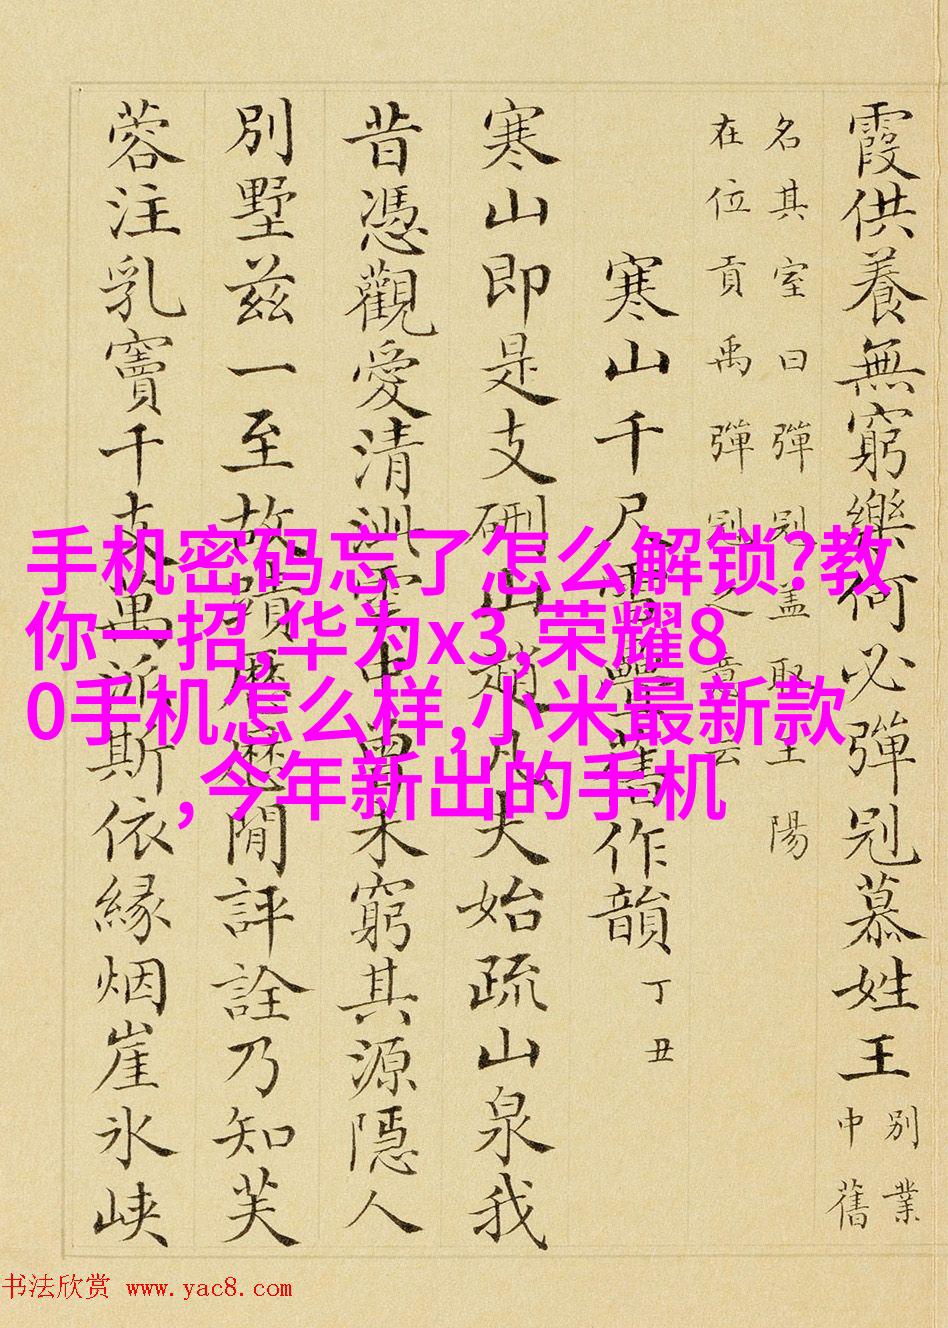 霞供養無窮樂何必彈冠慕姓王
別業
中舊
名其室曰彈冠蓋取王陽
在位貢禹彈冠之意云
寒山千尺雪疊舊作韻
丁丑
寒山即是支硎山趙凡夫始疏山泉我
昔憑觀愛清泚由曾未窮其源隱人
別墅茲一至故蹟歷歷閒評詮乃知芙
蓉注乳竇千支萬派斯依緣烟崖氷峽
手机密码忘了怎么解锁?教
你一招,华为x3,荣耀8
0手机怎么样,小米最新款
,今年新出的手机
书法欣赏 www.yac8.com